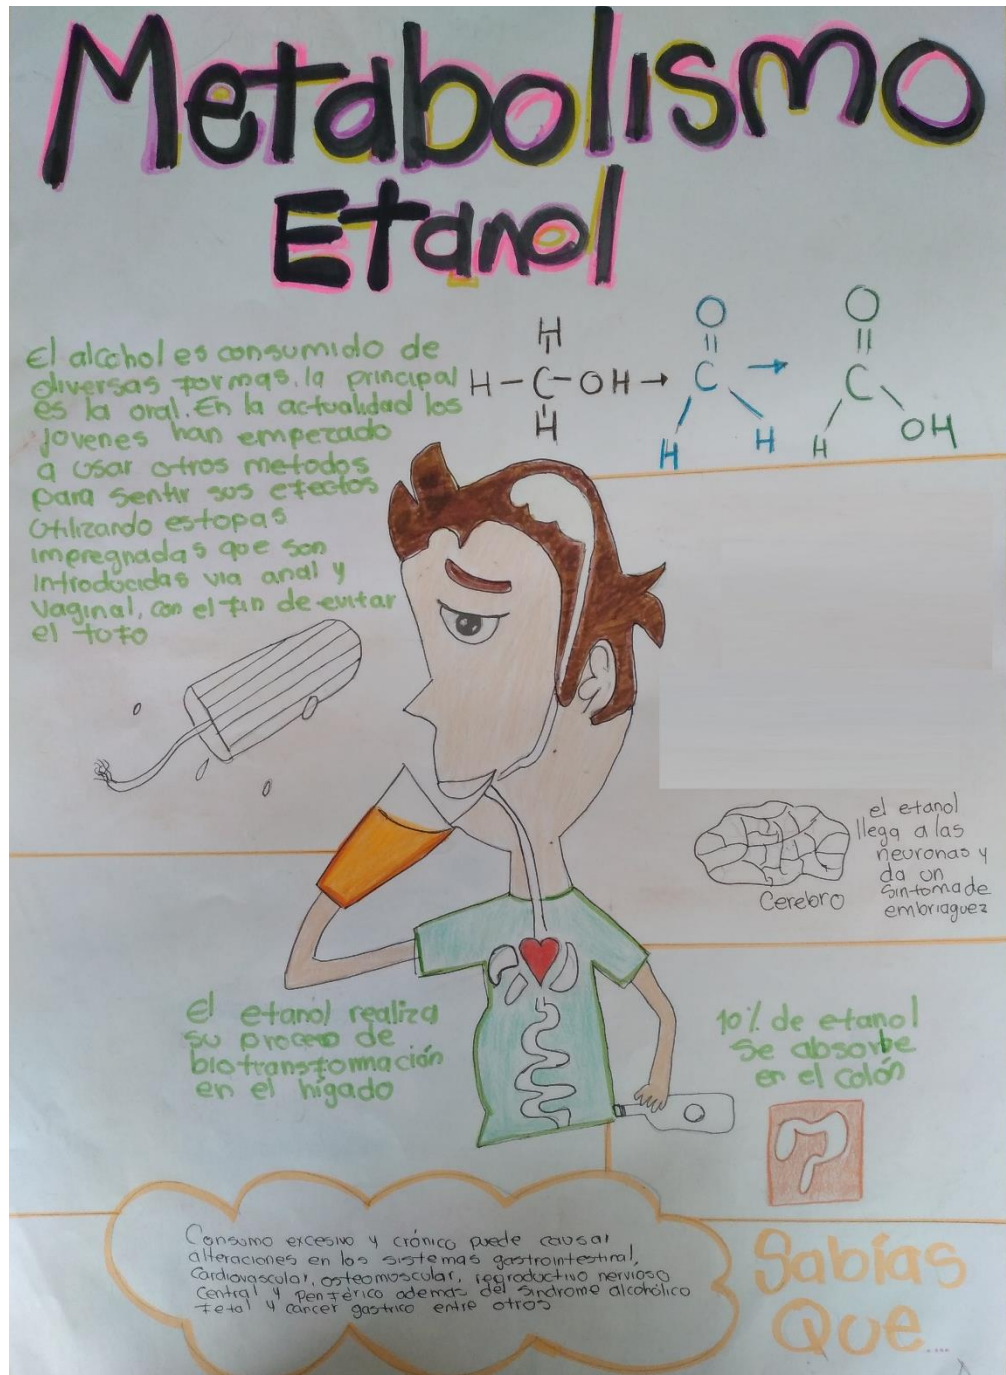 Metabolismo
Etanol
El alcohol es consumido de
diversas formas, la principal
es la oral. En la actualidad los
jovenes han empezado
a usar otros metodos
para sentir sus efectos
Utilizando estopas
impregnadas que son
introducidas via anal y
Vaginal, con el fin de evitar
el tufo
H
H-C-OH →
H
O
C →
H H
O
C
H OH
el etanol
llega a las
neuronas y
da un
sintoma de
embriaguez
Cerebro
El etanol realiza
su proceso de
biotransformación
en el hígado
10% de etanol
se absorbe
en el colón
Consumo excesivo y crónico puede causar
alteraciones en los sistemas gastrointestinal,
Cardiovascular, osteomuscular, reproductivo nervioso
Central y periférico ademas del sindrome alcohólico
Fetal y cáncer gastrico entre otros
Sabías
Que....